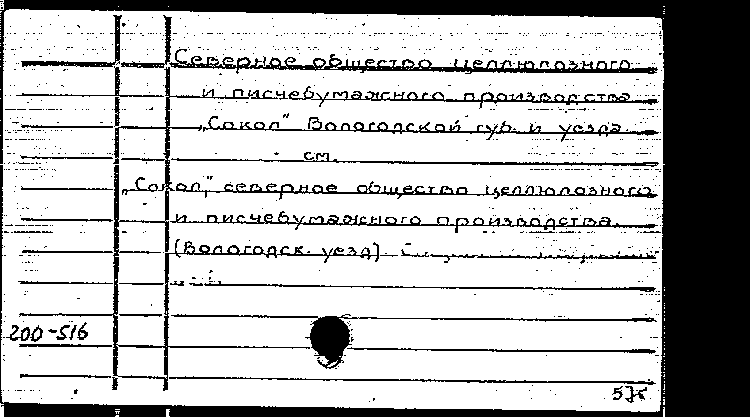 Северное общество целлюлозного
и писчебумажного производства
„Сокол" Вологодской губ. и уезда
см.
„Сокол," северное общество целлюлозного
и писчебумажного производства.
(Вологодск. уезд).
200-516